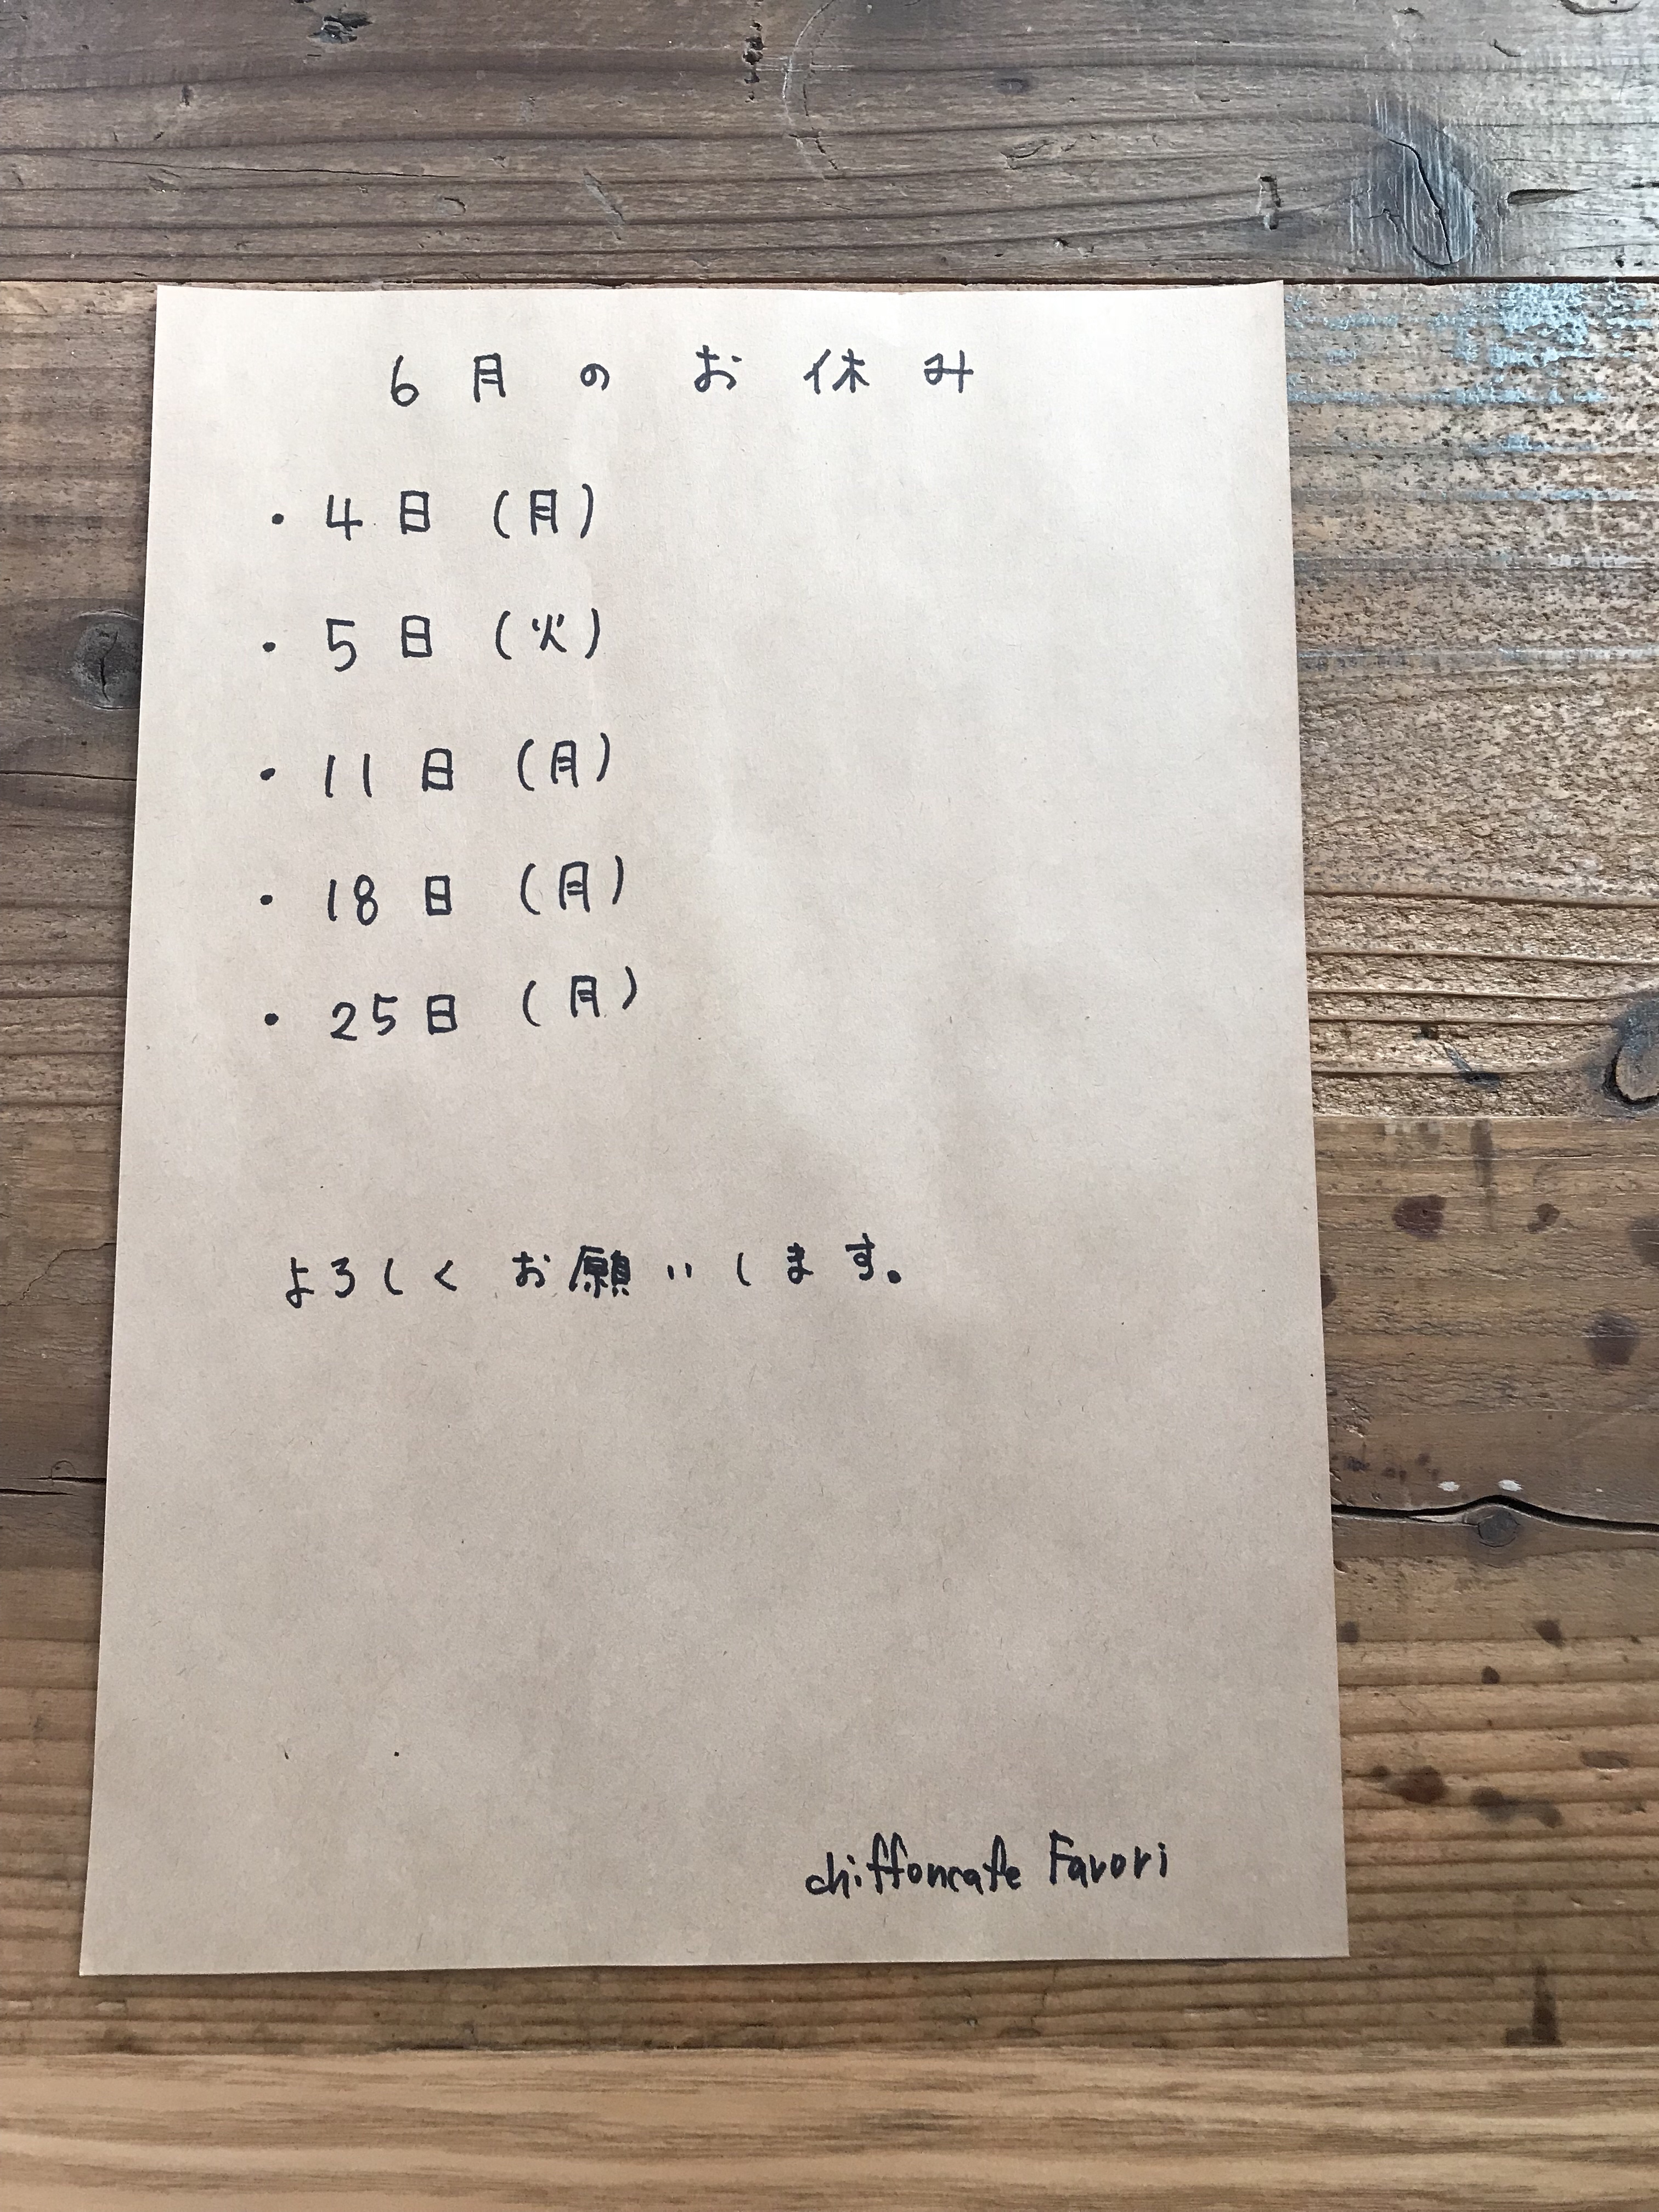 6月のお休み
・4日(月)
・5日(火)
・11日(月)
・18日(月)
・25日(月)
よろしくお願いします。
chiffoncafe Favori